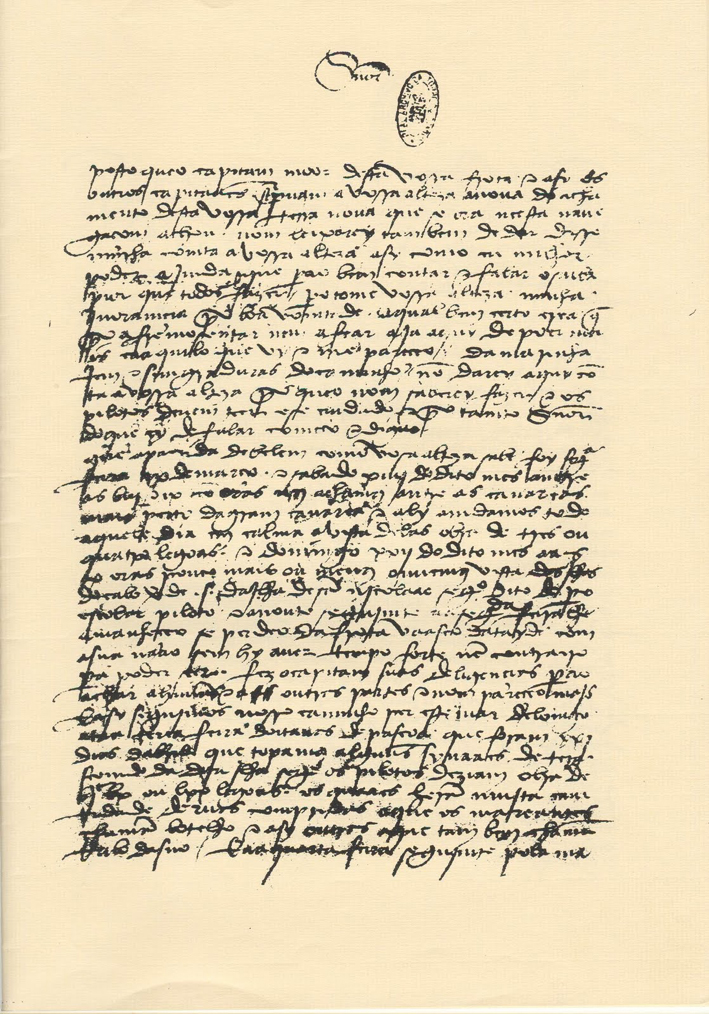 Snõr
posto queo capitam moor desta vossa frota e asy os
outros capitaães screpuam a vossa alteza a noua do acha
mento desta vossa terra noua que se ora neesta naue
gaçom achou. nom leixarey tambem de dar disso
minha comta a vossa alteza asy como eu milhor
poder ajmda que perao bem contar e falar o saiba
pior que todos fazer / pero tome vossa alteza minha
jnoramçia por boa vomtade. aqual bem çerto crea q̃
por afremosentar nem afear aja aquy de poer ma
is caaquilo que vy e me pareçeo / da marinha
jem e simgraduras do caminho nõ darey aquy cõ
ta a vossa alteza porqueo nom saberey fazer e os
pilotos deuem teer ese cuidado e por tanto Snõr
doque ey de falar começo e diguo
que apartida de belem como vossa alteza sabe foy segª
feira ix de março. e sabado xiiij do dito mes amtre
as biij e ix oras nos achamos antre as canareas
mais perto da gram canarea e aly amdamos todo
aquele dia em calma avista delas obra de tres ou
quatro legoas. e domingo xxij do dito mes aas
x oras pouco mais ou menos ouuemos vista das jlhas
do cabo verde .s. da jlha de sã njcolaao segº dito de pº
escolar piloto. e a noute segujmte aa segda feira lhe
amanheceo se perdeo da frota vaasco datayde com
a sua naao sem hy auer tempo forte nẽ contrairo
pera poder seer. fez ocapitam suas deligençias perao
achar ahuũas e a outras partes e nom pareçeo majs
E asy segujmos nosso caminho per este mar delomgo
ataa terça feira doitauas de pascoa que foram xxj
dias dabril que topamos alguũs synaaes de terra
seemdo da dita jlha segº os pilotos deziam obra de
bjc lx ou lxx legoas. os quaaes heram mujta cam
tidade deruas compridas aque os mareantes
chamã botelho e asy outras aque tam bem chamã
rrabo dasno / E aa quarta feira segujmte pola ma